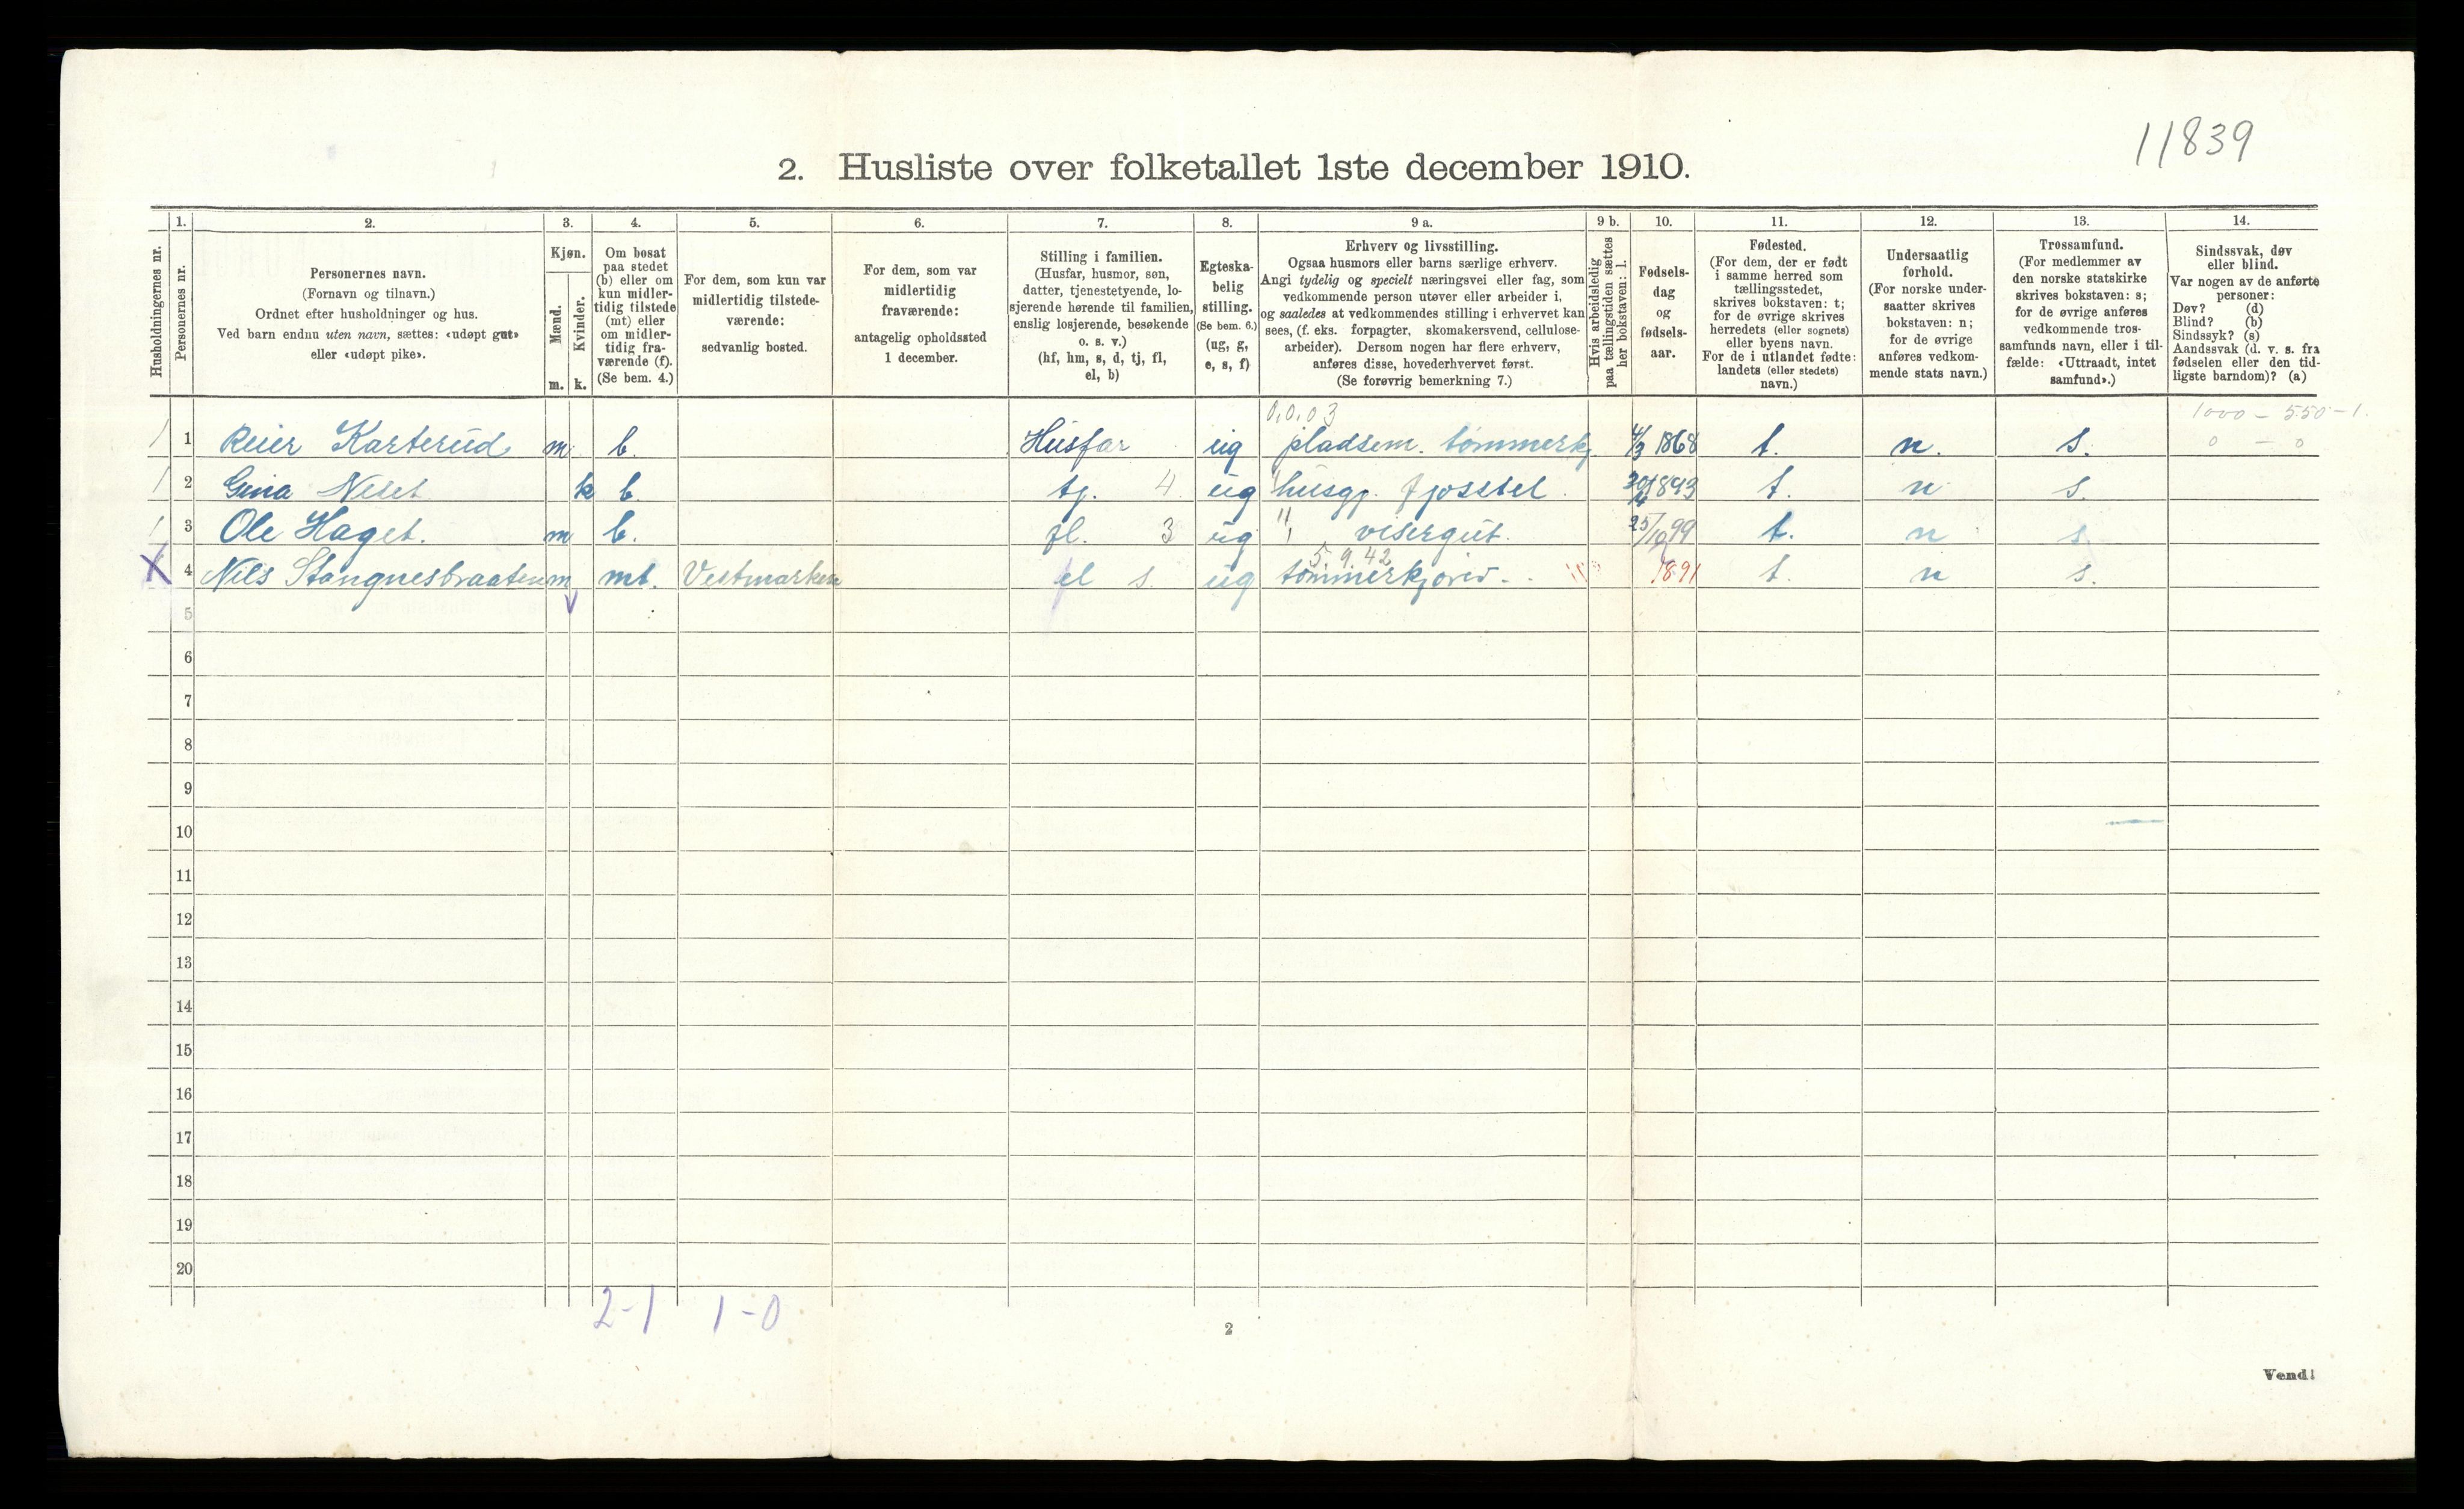 11839
2. Husliste over folketallet 1ste december 1910.
Husholdningernes nr.
1.
Personernes nr.
2.
Personernes navn.
(Fornavn og tilnavn.)
Ordnet efter husholdninger og hus.
Ved barn endnu uten navn, sættes: «udøpt gut»
eller «udøpt pike».
3.
Kjøn.
Mænd.
Kvinder.
m. k.
4.
Om bosat
paa stedet
(b) eller om
kun midler-
tidig tilstede
(mt) eller
om midler-
tidig fra-
værende (f).
(Se bem. 4.)
5.
For dem, som kun var
midlertidig tilstede-
værende:
sedvanlig bosted.
6.
For dem, som var
midlertidig
fraværende:
antagelig opholdssted
1 december.
7.
Stilling i familien.
(Husfar, husmor, søn,
datter, tjenestetyende, lo-
sjerende hørende til familien,
enslig losjerende, besøkende
o. s. v.)
(hf, hm, s, d, tj, fl,
el, b)
8.
Egteska-
belig
stilling.
(Se bem. 6.)
(ug, g,
e, s, f)
9 a.
Erhverv og livsstilling.
Ogsaa husmors eller barns særlige erhverv.
Angi tydelig og specielt næringsvei eller fag, som
vedkommende person utøver eller arbeider i,
og saaledes at vedkommendes stilling i erhvervet kan
sees, (f. eks. forpagter, skomakersvend, cellulose-
arbeider). Dersom nogen har flere erhverv,
anføres disse, hovederhvervet først.
(Se forøvrig bemerkning 7.)
9 b.
Hvis arbeidsledig
paa tællingstiden sættes
her bokstaven: l.
10.
Fødsels-
dag
og
fødsels-
aar.
11.
Fødested.
(For dem, der er født
i samme herred som
tællingsstedet,
skrives bokstaven: t;
for de øvrige skrives
herredets (eller sognets)
eller byens navn.
For de i utlandet fødte:
landets (eller stedets)
navn.)
12.
Undersaatlig
forhold.
(For norske under-
saatter skrives
bokstaven: n;
for de øvrige
anføres vedkom-
mende stats navn.)
13.
Trossamfund.
(For medlemmer av
den norske statskirke
skrives bokstaven: s;
for de øvrige anføres
vedkommende tros-
samfunds navn, eller i til-
fælde: «Uttraadt, intet
samfund».)
14.
Sindssvak, døv
eller blind.
Var nogen av de anførte
personer:
Døv? (d)
Blind? (b)
Sindssyk? (s)
Aandssvak (d. v. s. fra
fødselen eller den tid-
ligste barndom)? (a)
0,0,03 1000 - 550 - 1.
1 Reier Karterud m b. Husfar ug pladsem. tømmerkj. 4/3 1868 t. n. s. 0 - 0
2 Gina Neset k b. tj. 4 ug husgj. fjosstel. 1893 t. n s.
3 Ole Haget. m b. fl. 3 ug " visergut. 25/10 99 t. n s
5.9.42
X 4 Nils Stangnesbraaten m mt. Vestmarken el s. ug tømmerkjører. 1891 t. n s.
5
6
7
8
9
10
11
12
13
14
15
16
17
18
19
20
2-1 1-0
2
Vend!